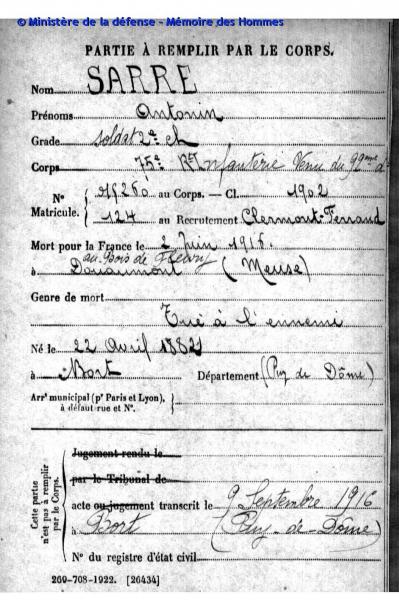 © Ministère de la défense - Mémoire des Hommes
PARTIE À REMPLIR PAR LE CORPS.
Nom SARRE
Prénoms Antonin
Grade soldat 2e cl
Corps 75e Rgt Infanterie Venu du 92ème d
N° Matricule. { au Corps. — Cl. 1902
124 au Recrutement Clermont-Ferrand
Mort pour la France le 2 Juin 1916.
au Bois de Fleury
à Douaumont (Meuse)
Genre de mort
Tué à l'ennemi
Né le 22 Avril 1882
à Bort Département (Puy de Dôme)
Arrt municipal (pr Paris et Lyon), à défaut rue et N°.
Cette partie n'est pas à remplir par le Corps.
Jugement rendu le
par le Tribunal de
acte ou jugement transcrit le 9 Septembre 1916
à Bort (Puy-de-Dome)
N° du registre d'état civil
260-708-1922. [26434]